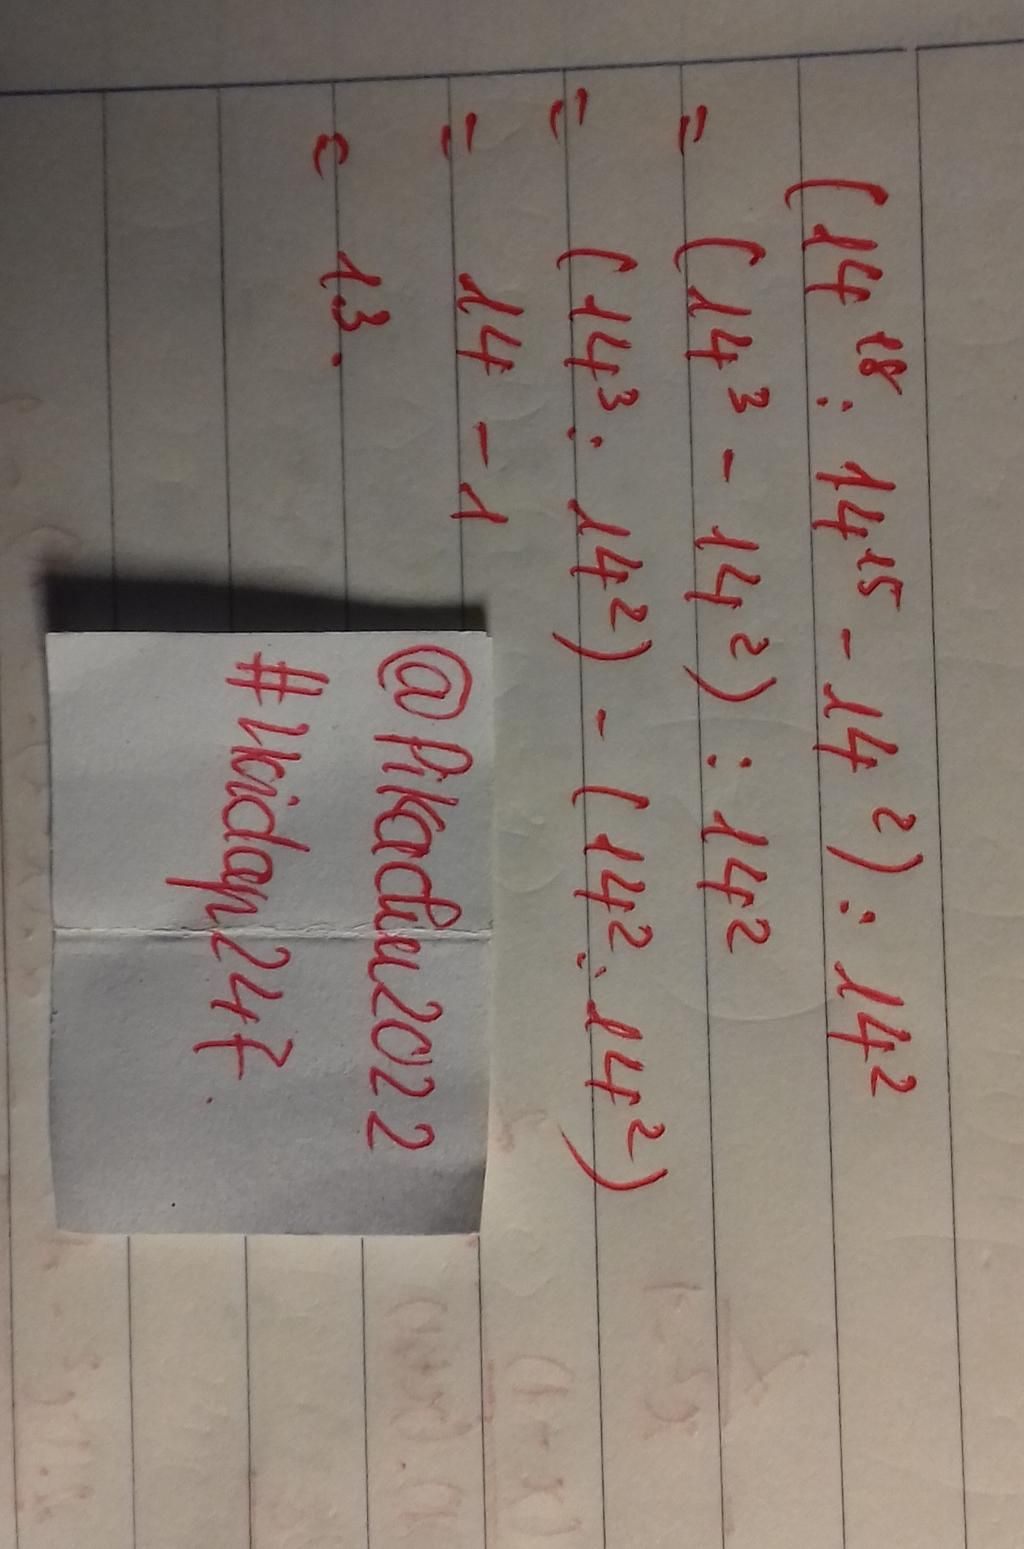 (14¹⁸ : 14¹⁵ - 14²) : 14²
= (14³ - 14²) : 14²
= (14³ : 14²) - (14² : 14²)
= 14 - 1
= 13.
@Pikachu2022
#1kidap247